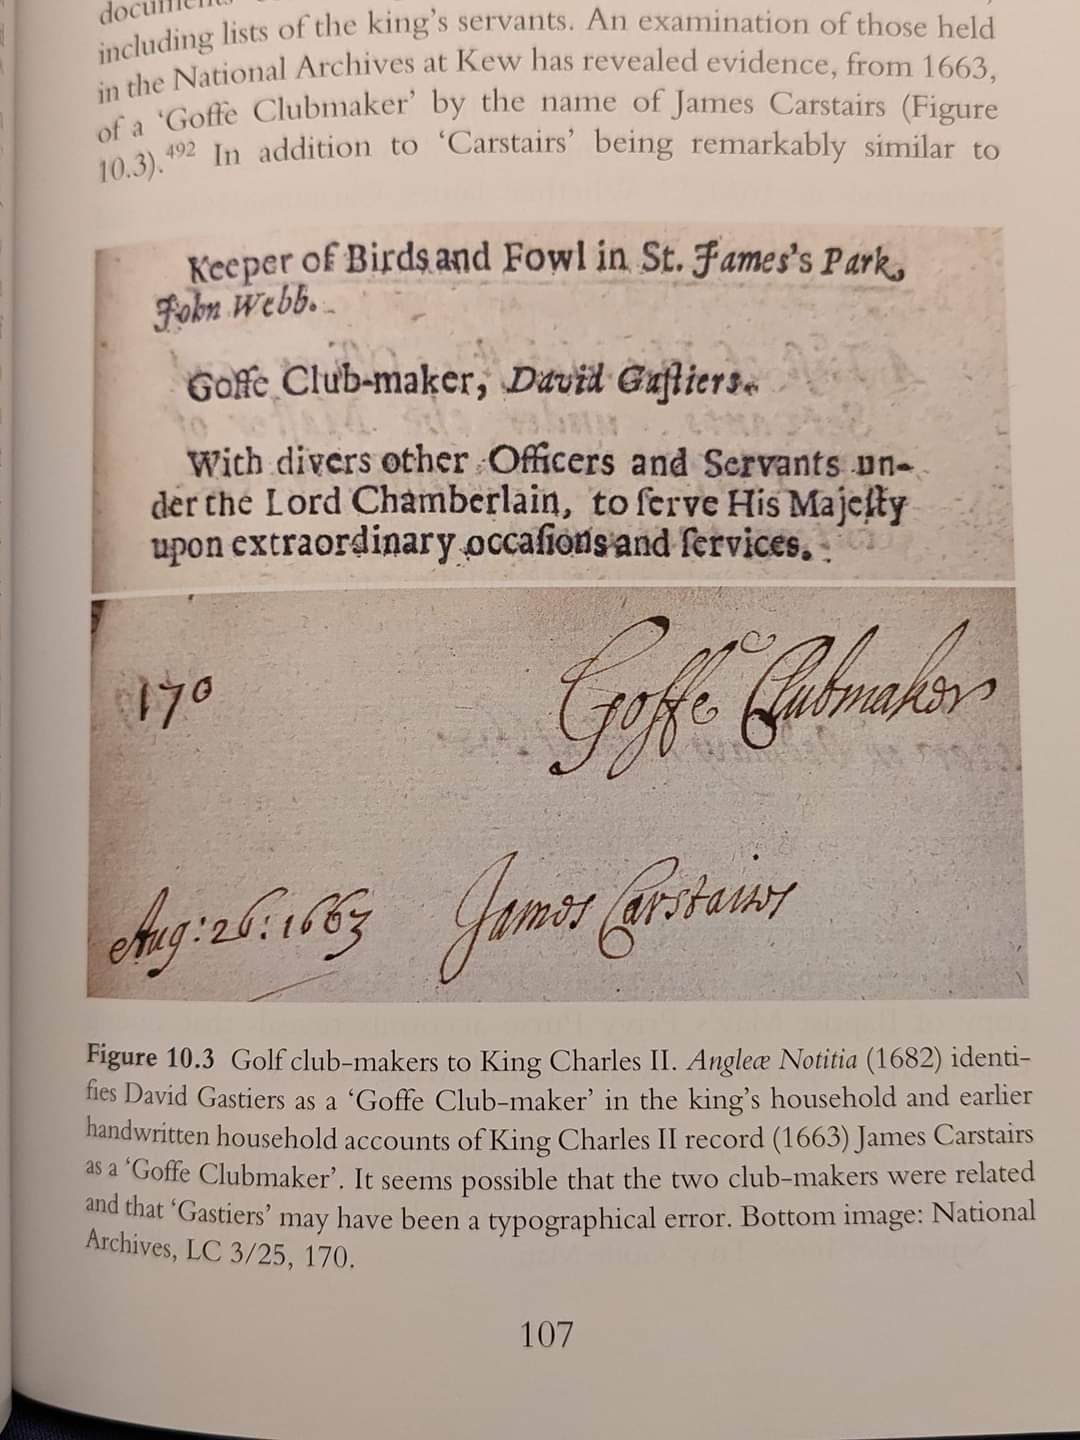 including lists of the king's servants. An examination of those held
in the National Archives at Kew has revealed evidence, from 1663,
of a 'Goffe Clubmaker' by the name of James Carstairs (Figure
10.3).492 In addition to 'Carstairs' being remarkably similar to
Keeper of Birds and Fowl in St. James's Park,
John Webb.
Goffe Club-maker, David Gaſtiers.
With divers other Officers and Servants un-
der the Lord Chamberlain, to ſerve His Majeſty
upon extraordinary occaſions and ſervices.
170
Goffe Clubmaker
Aug: 26: 1663 James Carstairs
Figure 10.3 Golf club-makers to King Charles II. Angleæ Notitia (1682) identi-
fies David Gastiers as a 'Goffe Club-maker' in the king's household and earlier
handwritten household accounts of King Charles II record (1663) James Carstairs
as a 'Goffe Clubmaker'. It seems possible that the two club-makers were related
and that 'Gastiers' may have been a typographical error. Bottom image: National
Archives, LC 3/25, 170.
107